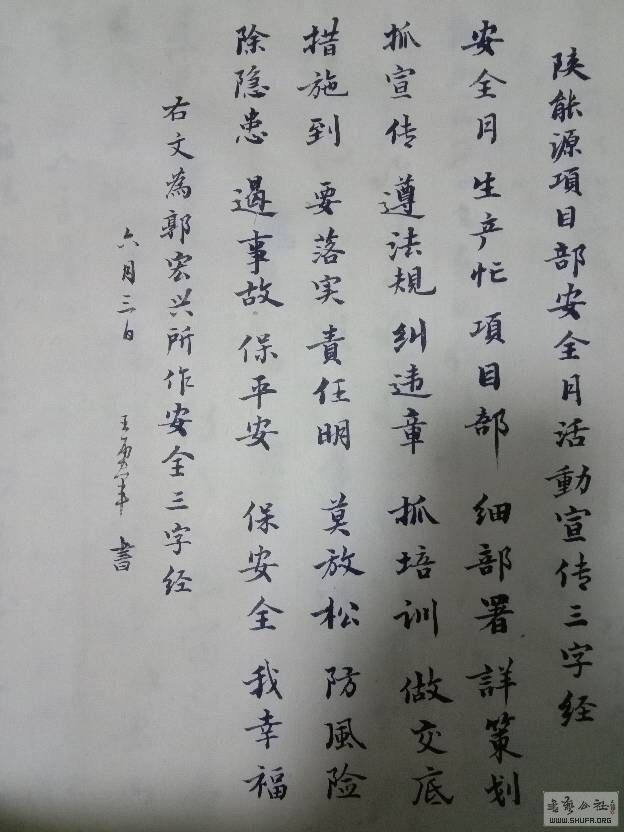 陕能源項目部安全月活動宣传三字经
安全月 生产忙 項目部 细部署 詳策划
抓宣传 遵法規 糾违章 抓培训 做交底
措施到 要落实 責任明 莫放松 防風险
除隐患 遏事故 保平安 保安全 我幸福
右文為郭宏兴所作安全三字经
六月三日 王 军 書
WWW.SHUFA.ORG